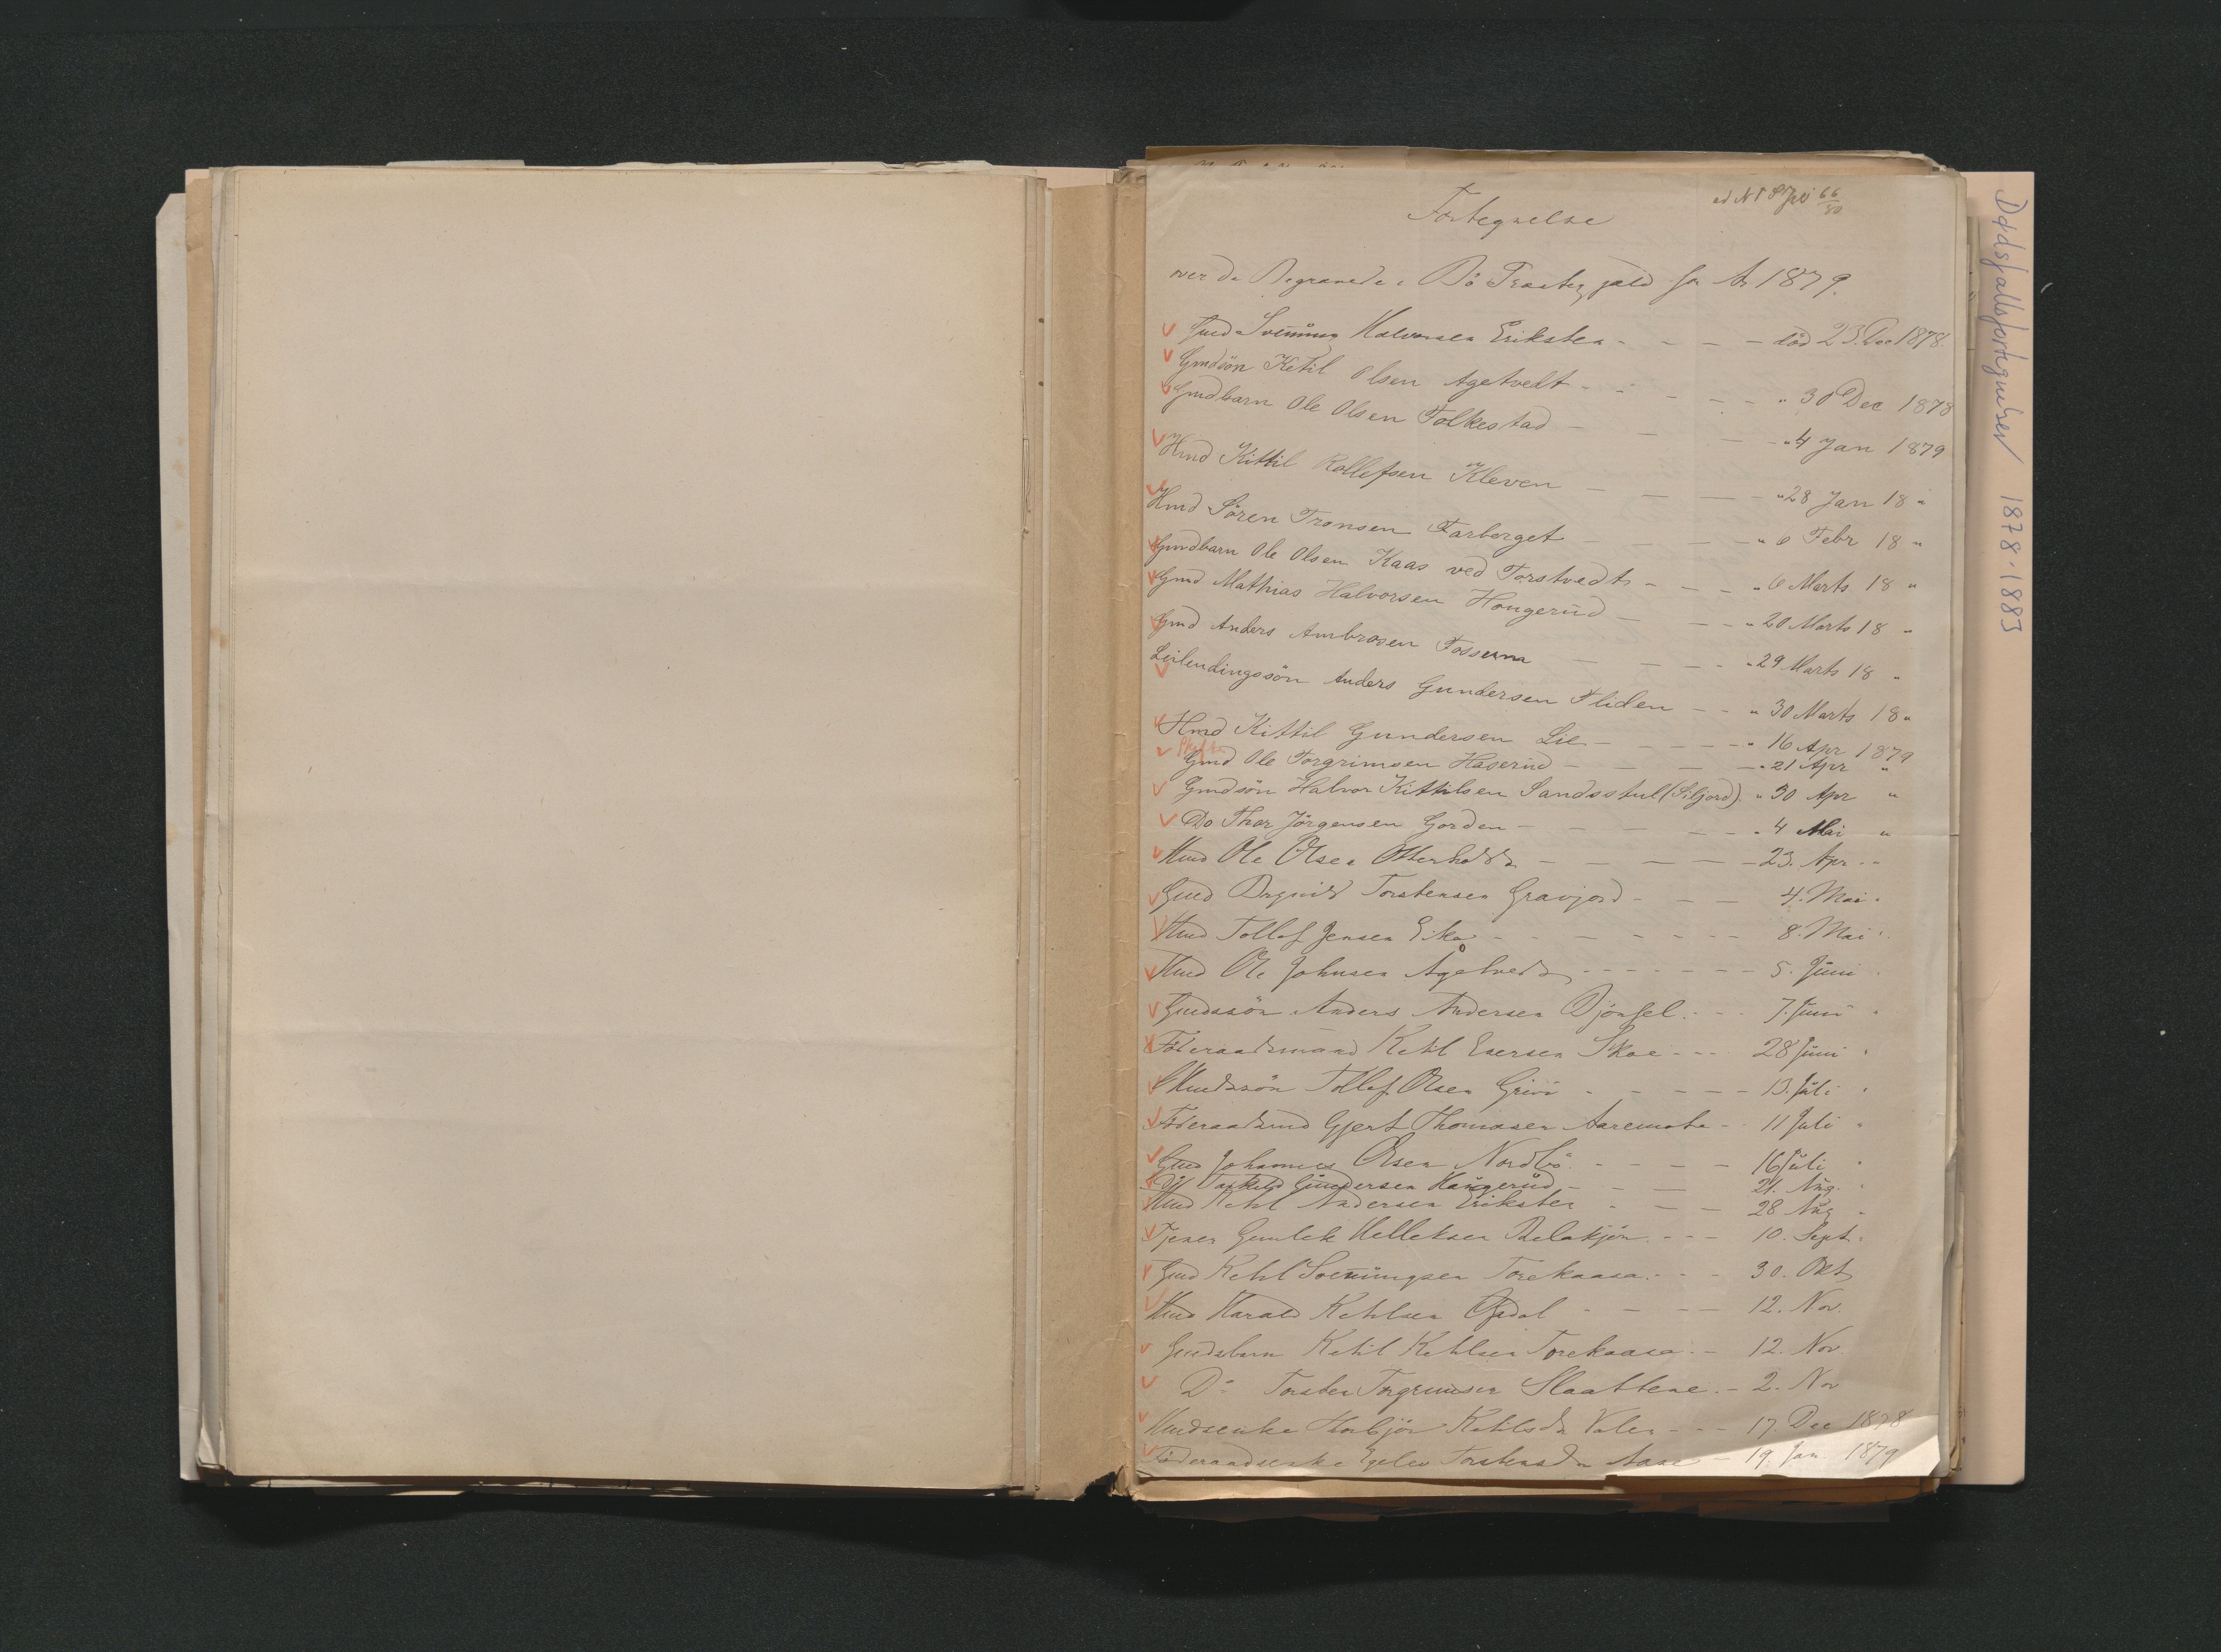 ad N 8 Jrl 66/80
Fortegnelse
over de Begravede i Bö Præstegjeld for År 1879.
Gmd Svennung Halvorsen Eriksten - - - - död 23. Dec 1878
Gmdsön Ketil Olsen Agetvedt - - - - - " 30 Dec 1878
Gmdbarn Ole Olsen Folkestad - - - " 4 Jan 1879
Hmd Kittil Rollefsen Kleven - - - - " 28 Jan 18 "
Hmd Sören Tronsen Farberget - - - - " 6 Febr 18 "
Gmdbarn Ole Olsen Kaas ved Torstvedt - - - " 6 Marts 18 "
Gmd Mathias Halvorsen Hougerud - - - " 20 Marts 18 "
Gmd Anders Ambrosen Fosserna - - - - " 29 Marts 18 "
Leilendingssön Anders Gundersen Fliden - - " 30 Marts 18 "
Hmd Kittil Gundersen Lie - - - - - " 16 Apr 1879
Skifte
Gmd Ole Torgrimsen Haserud - - - - " 21 Apr "
Gmdsön Halvor Kittilsen Sandsstul (Siljord) " 30 Apr "
Do Thor Jörgensen Gorden - - - - - " 4 Mai "
Hmd Ole Olsen Otterholdt - - - - - 23. Apr. "
Gmd Torstensen Gravjord - - - 4. Mai "
Hmd Tollef Jensen Eika - - - - - - 8. Mai "
Hmd Ole Johnsen Ågetvedt - - - - - - 5. Juni "
Gmdssön Anders Andersen Djönsel. - - - 7. Juni "
Föderaadsmand Ketil Eversen Skoe - - - 28 Juni "
Hmdssön Tollef Olsen Grivi - - - - - 13. Juli "
Föderaadsmd Gjert Thomasen Aaremote - - 11 Juli "
Gmd Johannes Olsen Nordbö. - - - - 16 Juli "
Do Taskeld Gundersen Haugerud - - - 21. Aug. "
Hmd Ketil Andersen Eriksten - - - 28 Aug "
Tjener Gunlek Helleksen - - - 10. Sept. "
Gmd Ketil Svennungsen Torekaasa. - - 30. Okt
Hmd Harald Ketilsen Opdal - - - - 12. Nov.
Gmdsbarn Ketil Ketilsen Torekaasa. - 12. Nov.
Do Torsten Torgrimsen Slaattene. - 2. Nov
Hmdsenke Thorbjör Ketilsdr Valen - - - 17. Dec 1878
Föderaadsenke Egelev Torstensdr Aase - 19. Jan. 1879
Dødsfallsfortegnelser 1878-1883